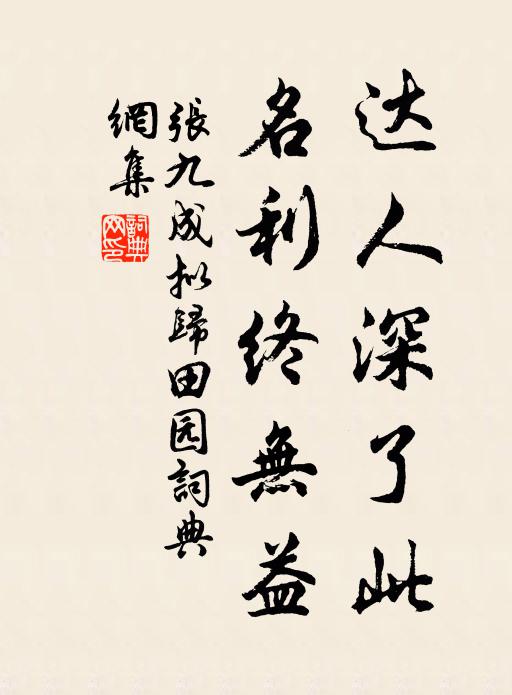 达人深了此
名利终無益
張九成拟歸田园詞典
網集
詞典
网印